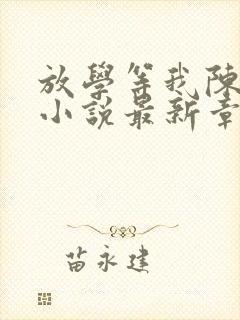 放學等我陳
小說最新章
苗永建